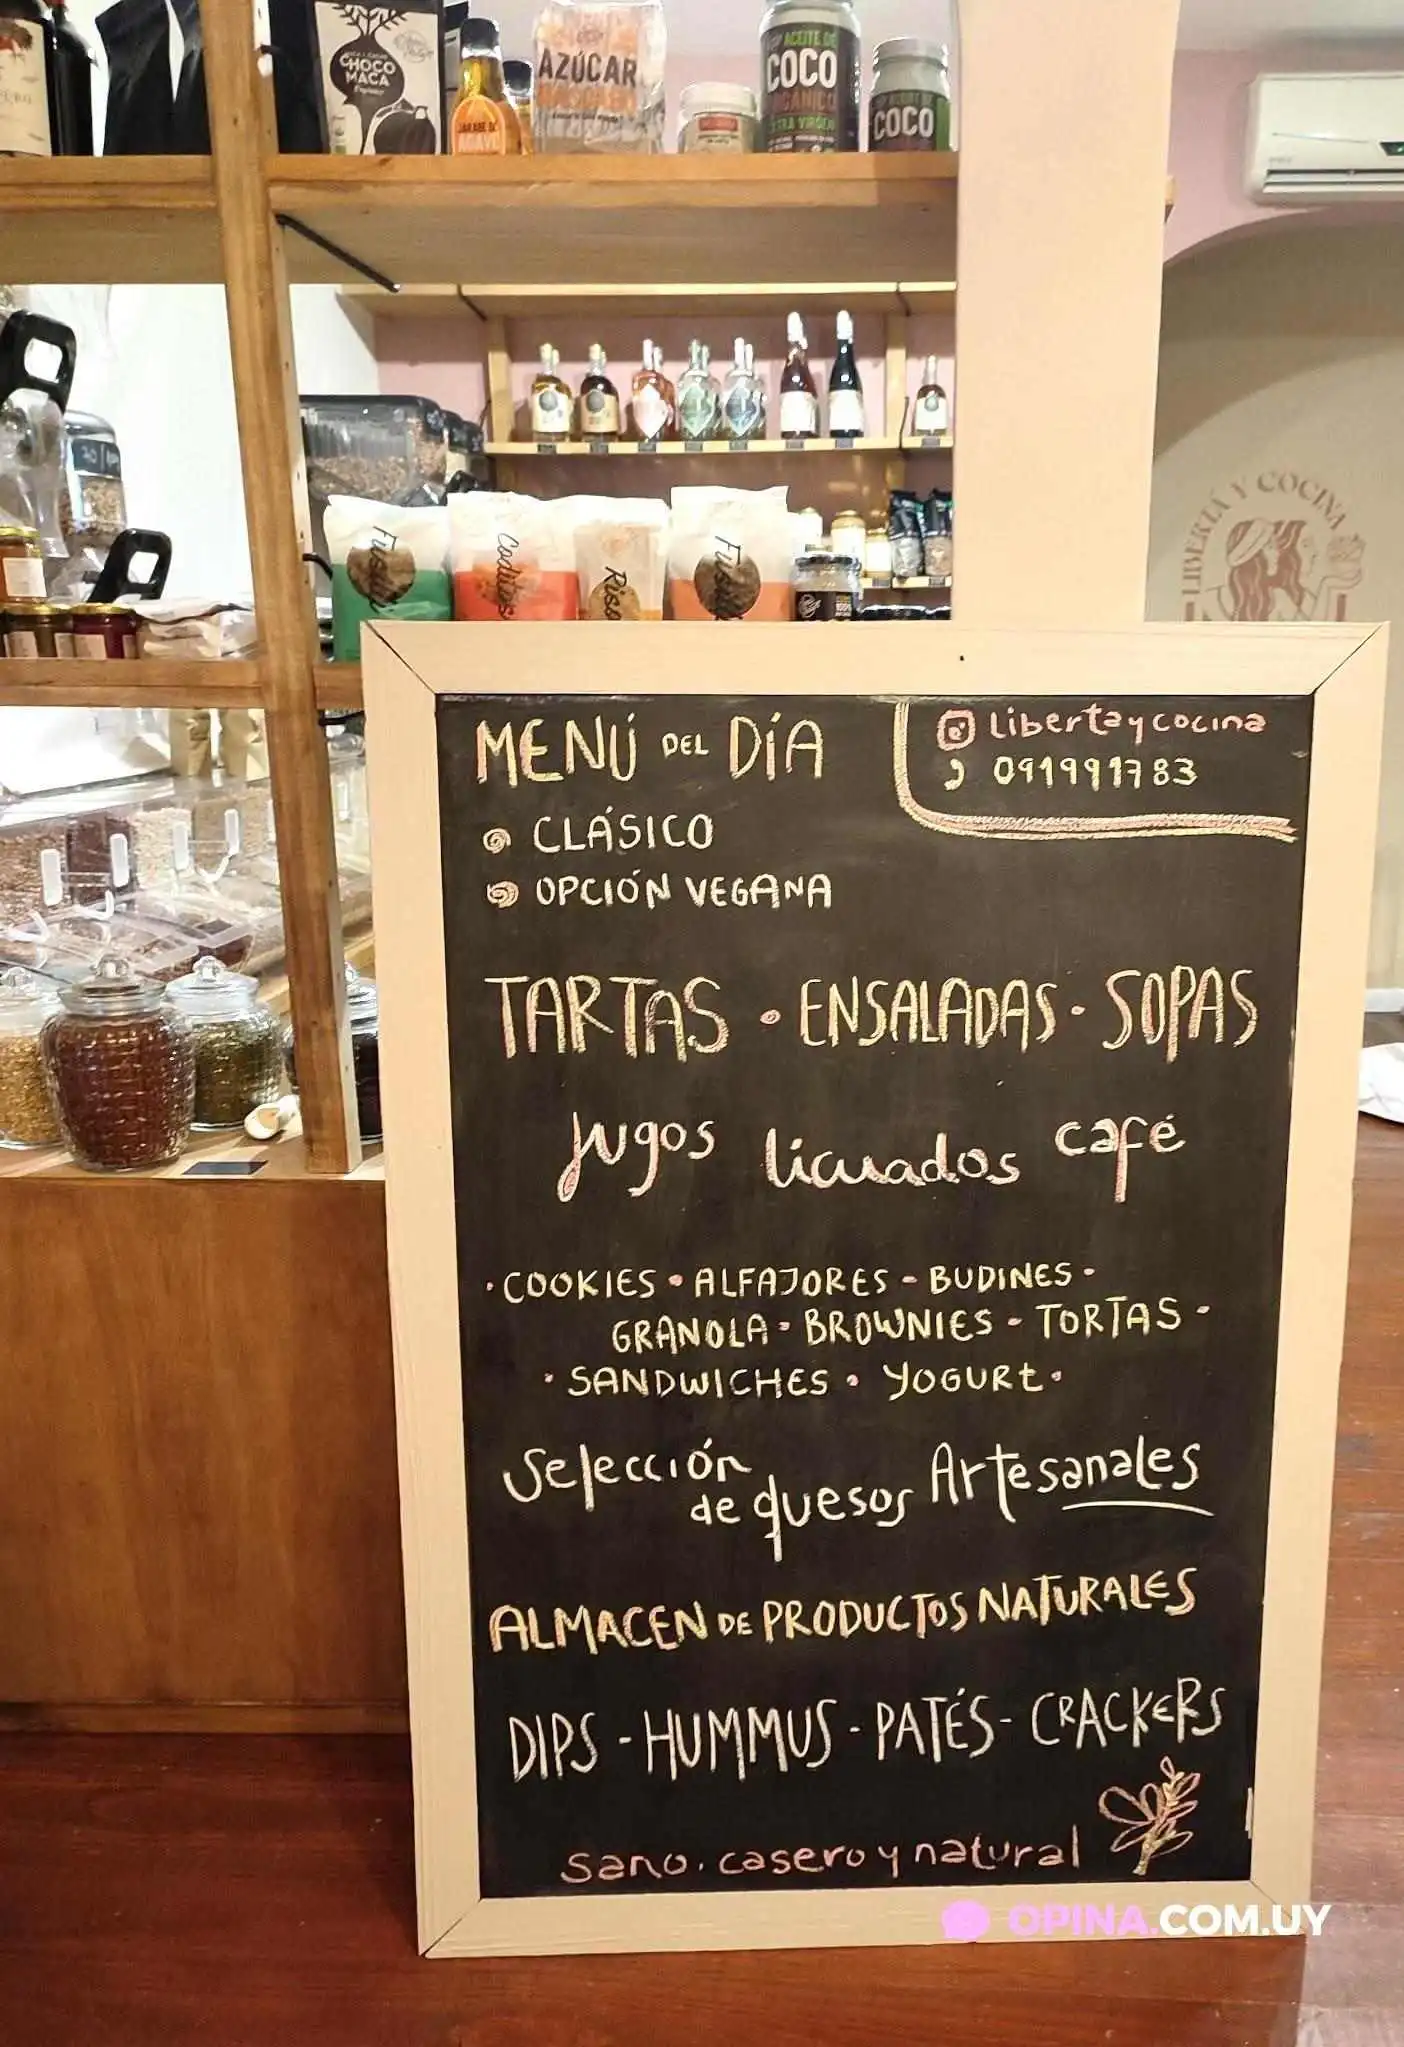 CHOCO
MACA
JARABE DE
AGAVE
AZÚCAR
ACEITE DE
COCO
ORGÁNICO
EXTRA VIRGEN
COCO
Fusilli
Coditos
Fusilli
LIBERTÁ Y COCINA
MENÚ DEL DÍA
libertaycocina
091991783
CLÁSICO
OPCIÓN VEGANA
TARTAS • ENSALADAS • SOPAS
jugos licuados café
• COOKIES • ALFAJORES - BUDINES -
GRANOLA - BROWNIES - TORTAS -
• SANDWICHES • YOGURt •
Selección
de quesos Artesanales
ALMACEN DE PRODUCTOS NATURALES
DIPS - HUMMUS - PATÉS - CRACKERS
sano, casero y natural
OPINA.COM.UY